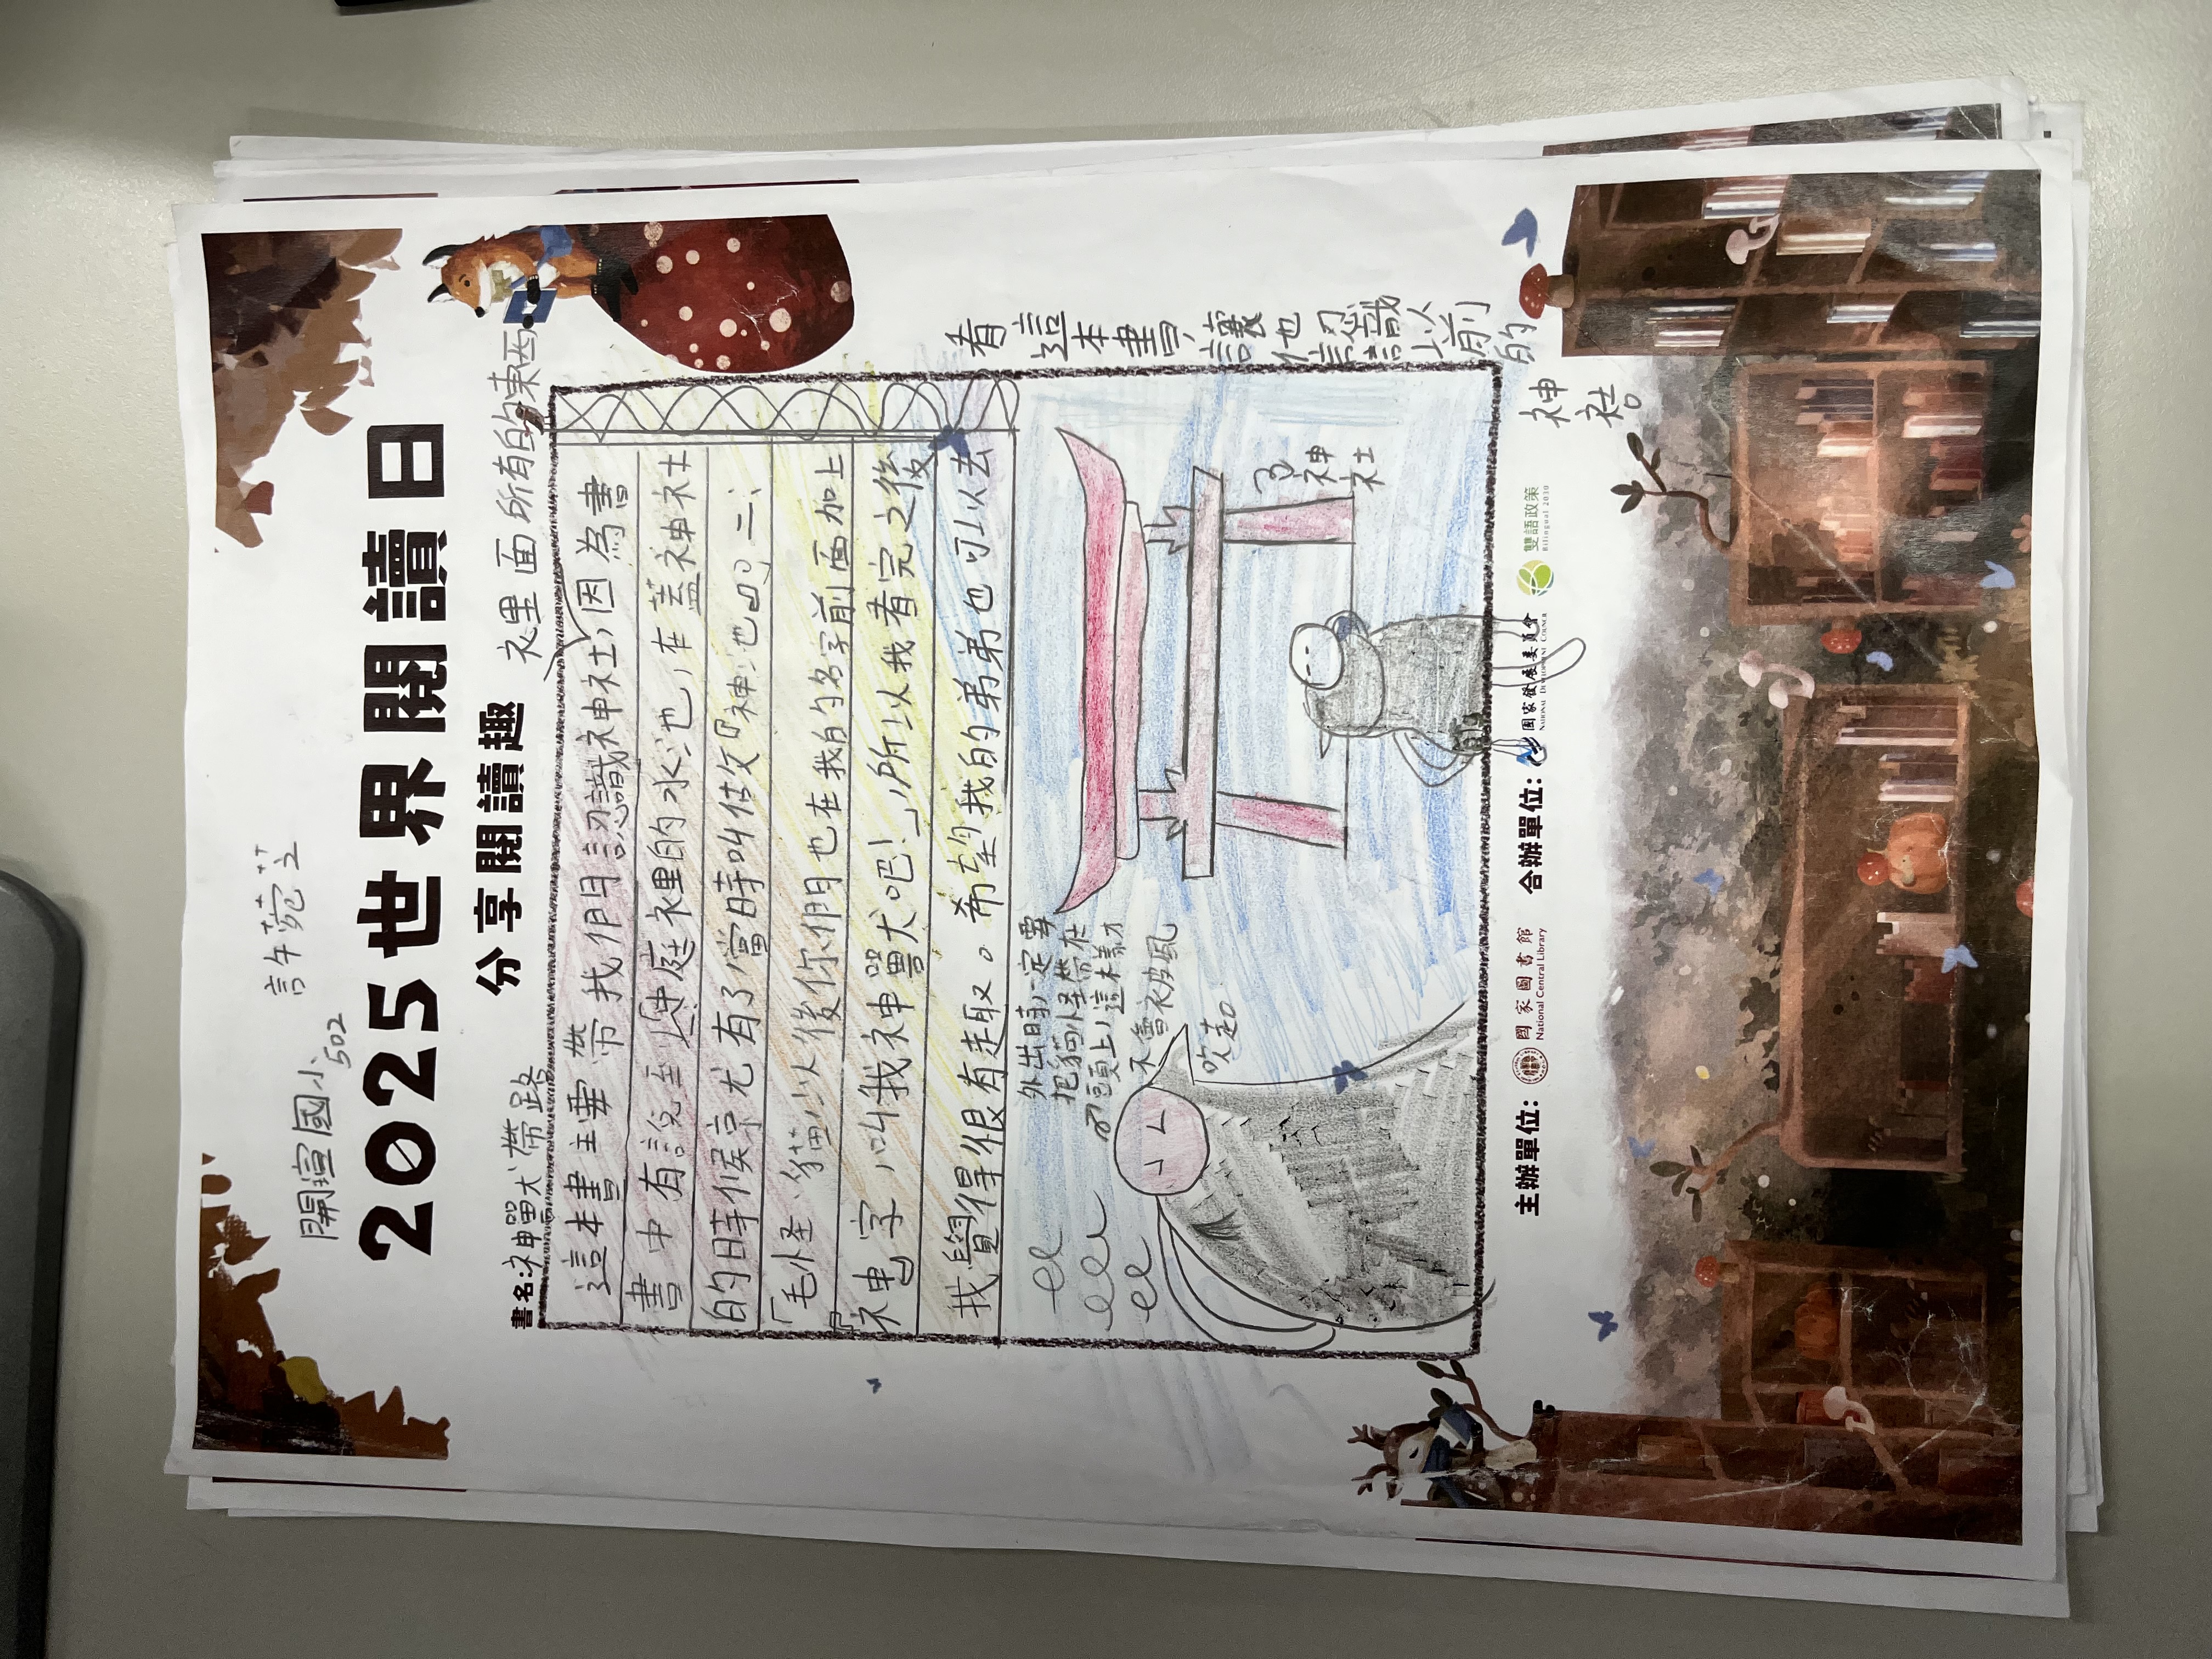 開瑄國小
502
許菀芝
2025世界閱讀日
分享閱讀趣
書名:神獸犬帶路
裡面所有的東西
這本書主要帶我們認識神社,因為書
書中有說至庭裡的水池,在蓋神社
的時候就有了,當時叫做『神池』二、
「毛怪、貓,以後你們也在我的名字前面加上
『神』字,叫我神獸犬吧!」所以我看完之後
我覺得很有趣。希望我的弟弟也可以去
看這本書,讓他認識以前的
神社。
外出時一定要
把貓怪帶在
頭上,這樣才
不會被風
吹走。
神社
主辦單位:
國家圖書館
National Central Library
合辦單位:
國家發展委員會
National Development Council
雙語政策
Bilingual 2030